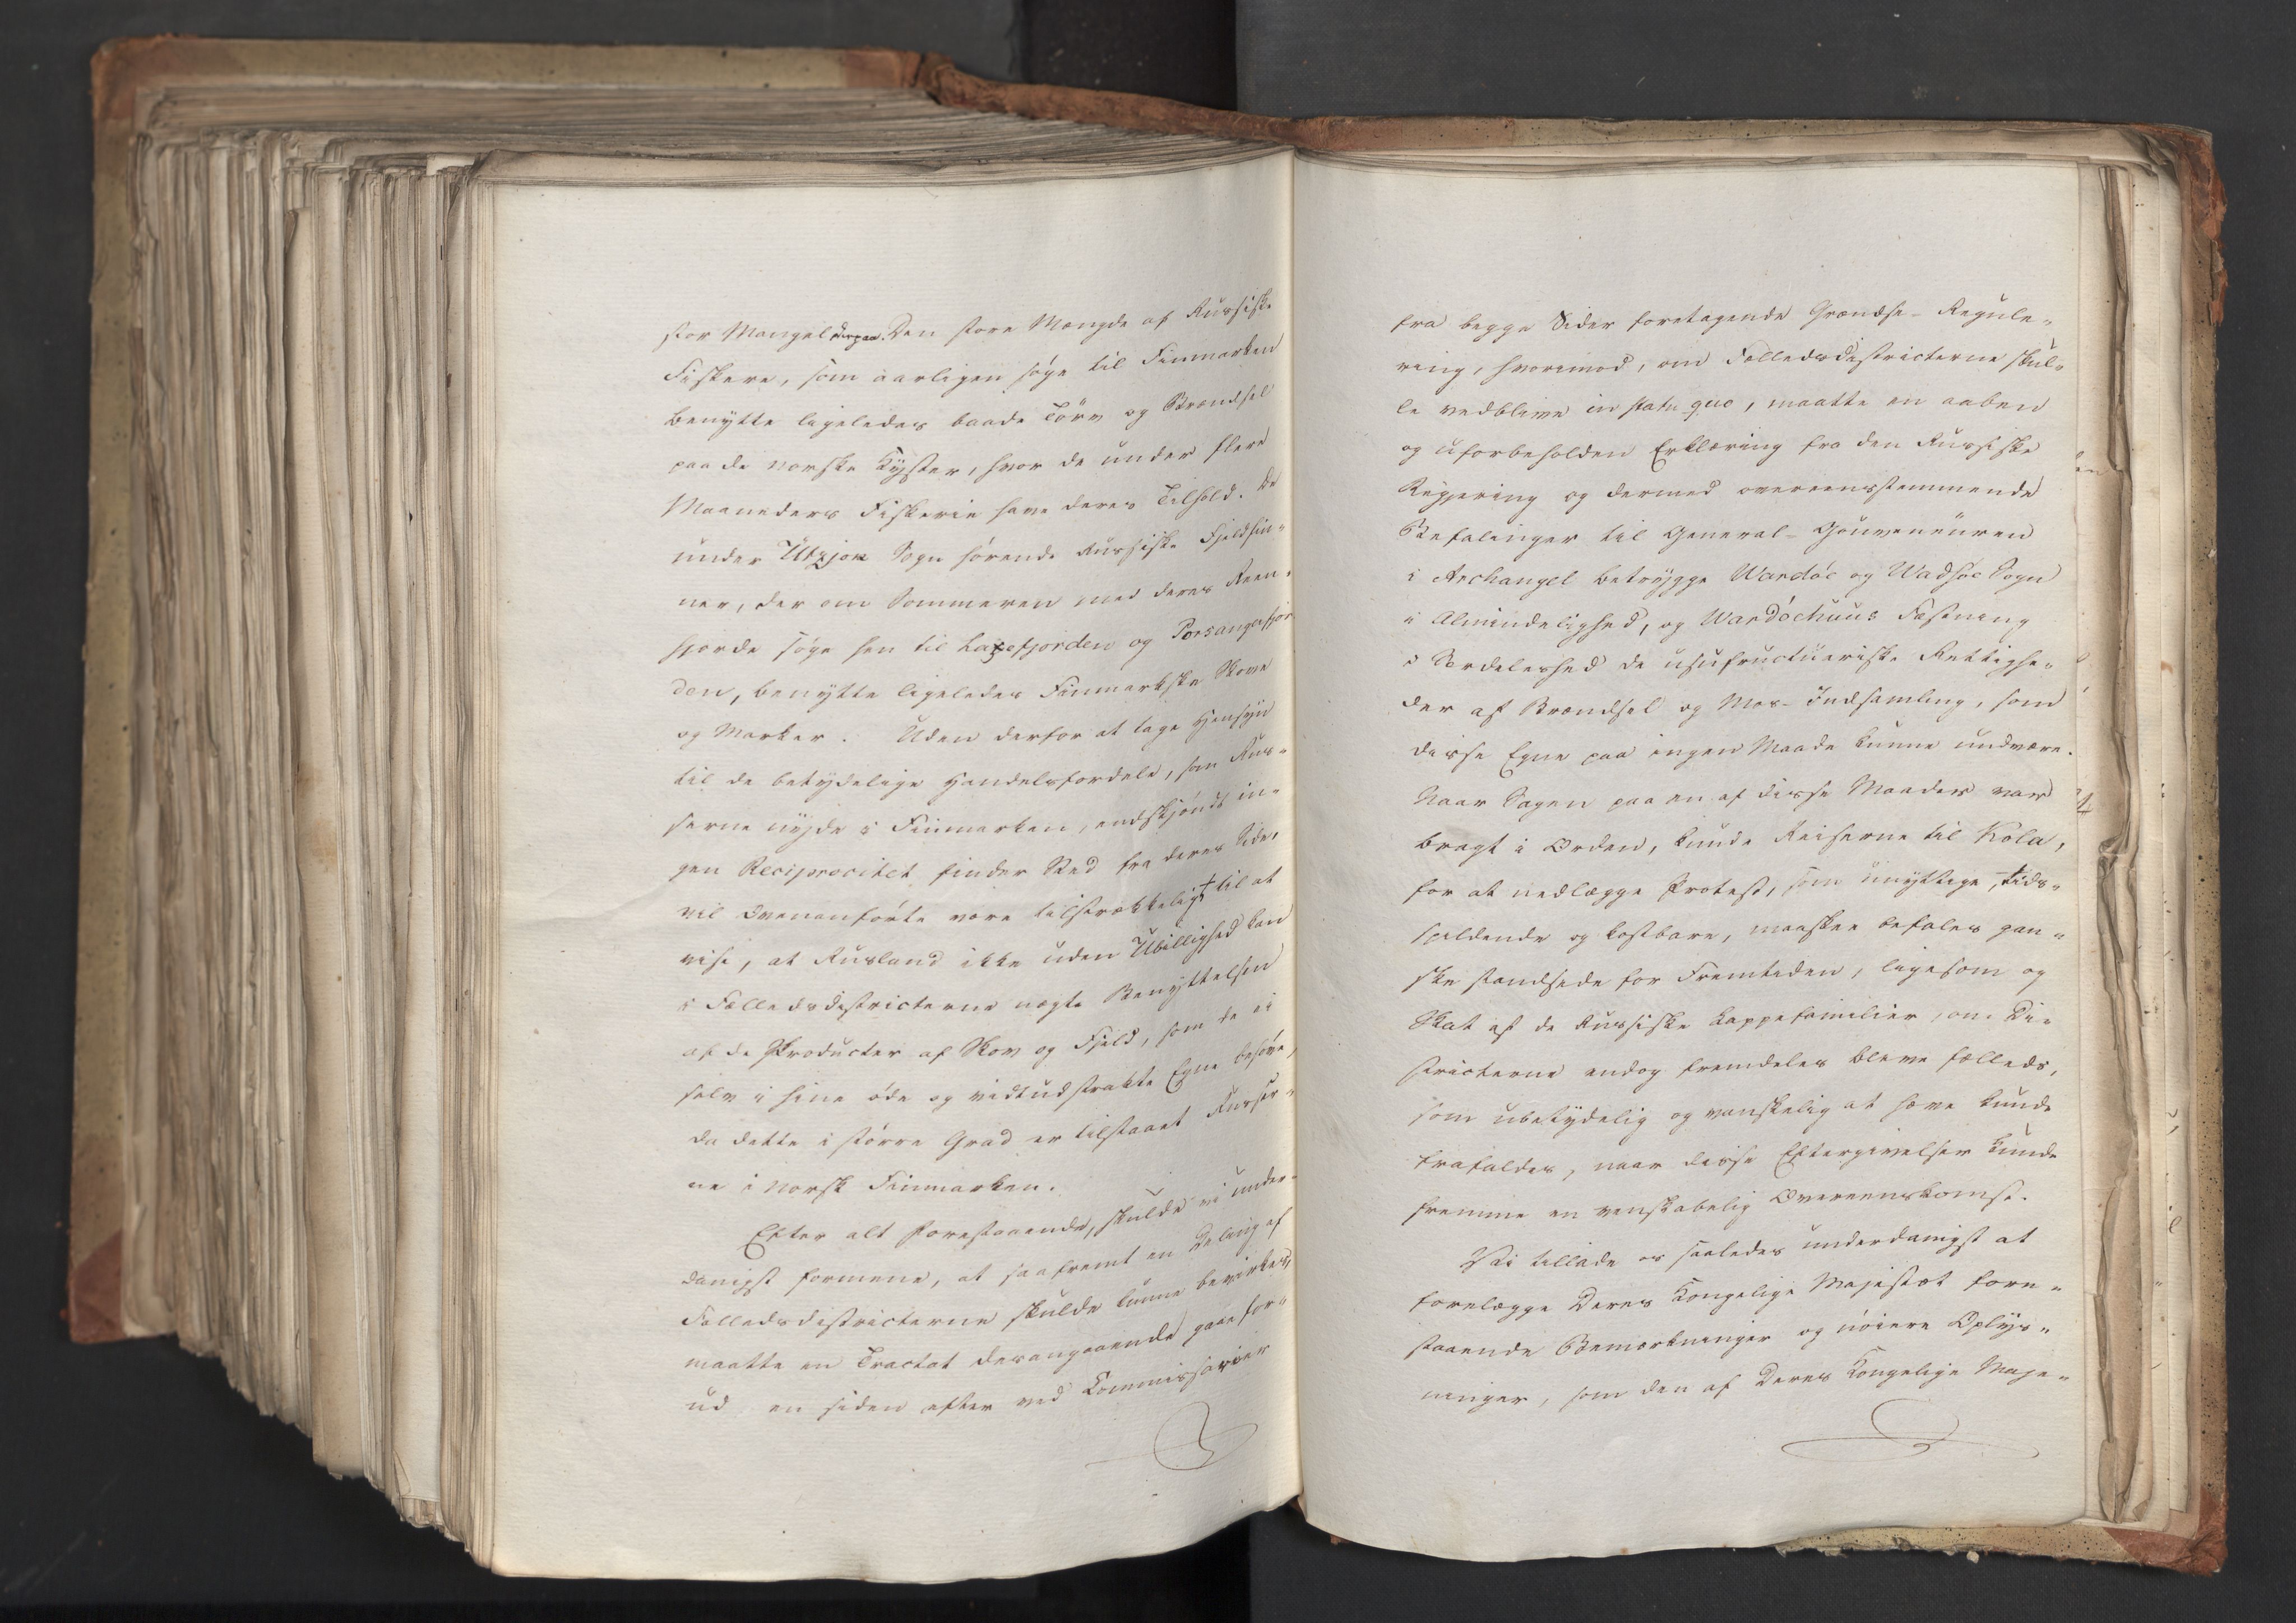 stor Mangel derpaa. Den store Mængde af Russiske
Fiskere, som aarligen søge til Finmarken
benytte ligeledes baade Törv og Brændsel
paa de norske Kyster, hvor de under flere
Maaneders Fiskerie have deres Tilhold. De
under Utzjok Sogn hørende Russiske Fjeldfin-
ner, der om Sommeren med deres Reen-
hjorde søge hen til Laxefjorden og Porsangerfjor
den, benytte ligeledes Finmarkske Skove
og Marker. Uden derfor at tage Hensyn
til de betydelige Handelsfordele, som Rus-
serne nyde i Finmarken, endskjöndt in-
gen Reciprocitet finder Sted fra deres Side,
vil Ovenanførte være tilstrækkeligt til at
vise, at Rusland ikke uden Ubillighed kan
i Fælledsdistricterne nægte Benyttelsen
af de Producter af Skov og Fjeld, som de ei
selv i hine øde og vidtudstrakte Egne behøve,
da dette i større Grad er tilstaaet Russer-
ne i norsk Finmarken.
Efter alt Forestaaende, skulde vi under-
danigst formene, at saafremt en Deling af
Fælledsdistricterne skulde kunne bevirkes,
maatte en Tractat desangaaende gaae for-
ud en siden efter ved Commissarier
fra begge Sider foretagende Grændse-Regule-
ring, hvorimod, om Fælledsdistricterne skul-
le vedblive in statu quo, maatte en aaben
og uforbeholden Erklæring fra den Russiske
Regjering og dermed overeensstemmende
Befalinger til General-Gouverneuren
i Archangel betrygge Wardöe og Wadsöe Sogn
i Almindelighed, og Wardöehuus Fæstning
i Særdeleshed de usufructuariske Rettighe-
der af Brændsel og Mos-Indsamling, som
disse Egne paa ingen Maade kunne undvære.
Naar Sagen paa en af disse Maader var
bragt i Orden, kunde Reiserne til Kola,
for at nedlægge Protest, som unyttige, tids-
spildende og kostbare, maaskee befales gan-
ske standsede for Fremtiden, ligesom og
Skat af de Russiske Lappefamilier, om Di-
stricterne endog fremdeles bleve fælleds,
som ubetydelig og vanskelig at hæve kunde
frafaldes, naar disse Eftergivelser kunde
fremme en venskabelig Overeenskomst.
Vi tillade os saaledes underdanigst at
forelægge Deres Kongelige Majestæt fore-
staaende Bemærkninger og nöiere Oplys-
ninger, som den af Deres Kongelige Maje-